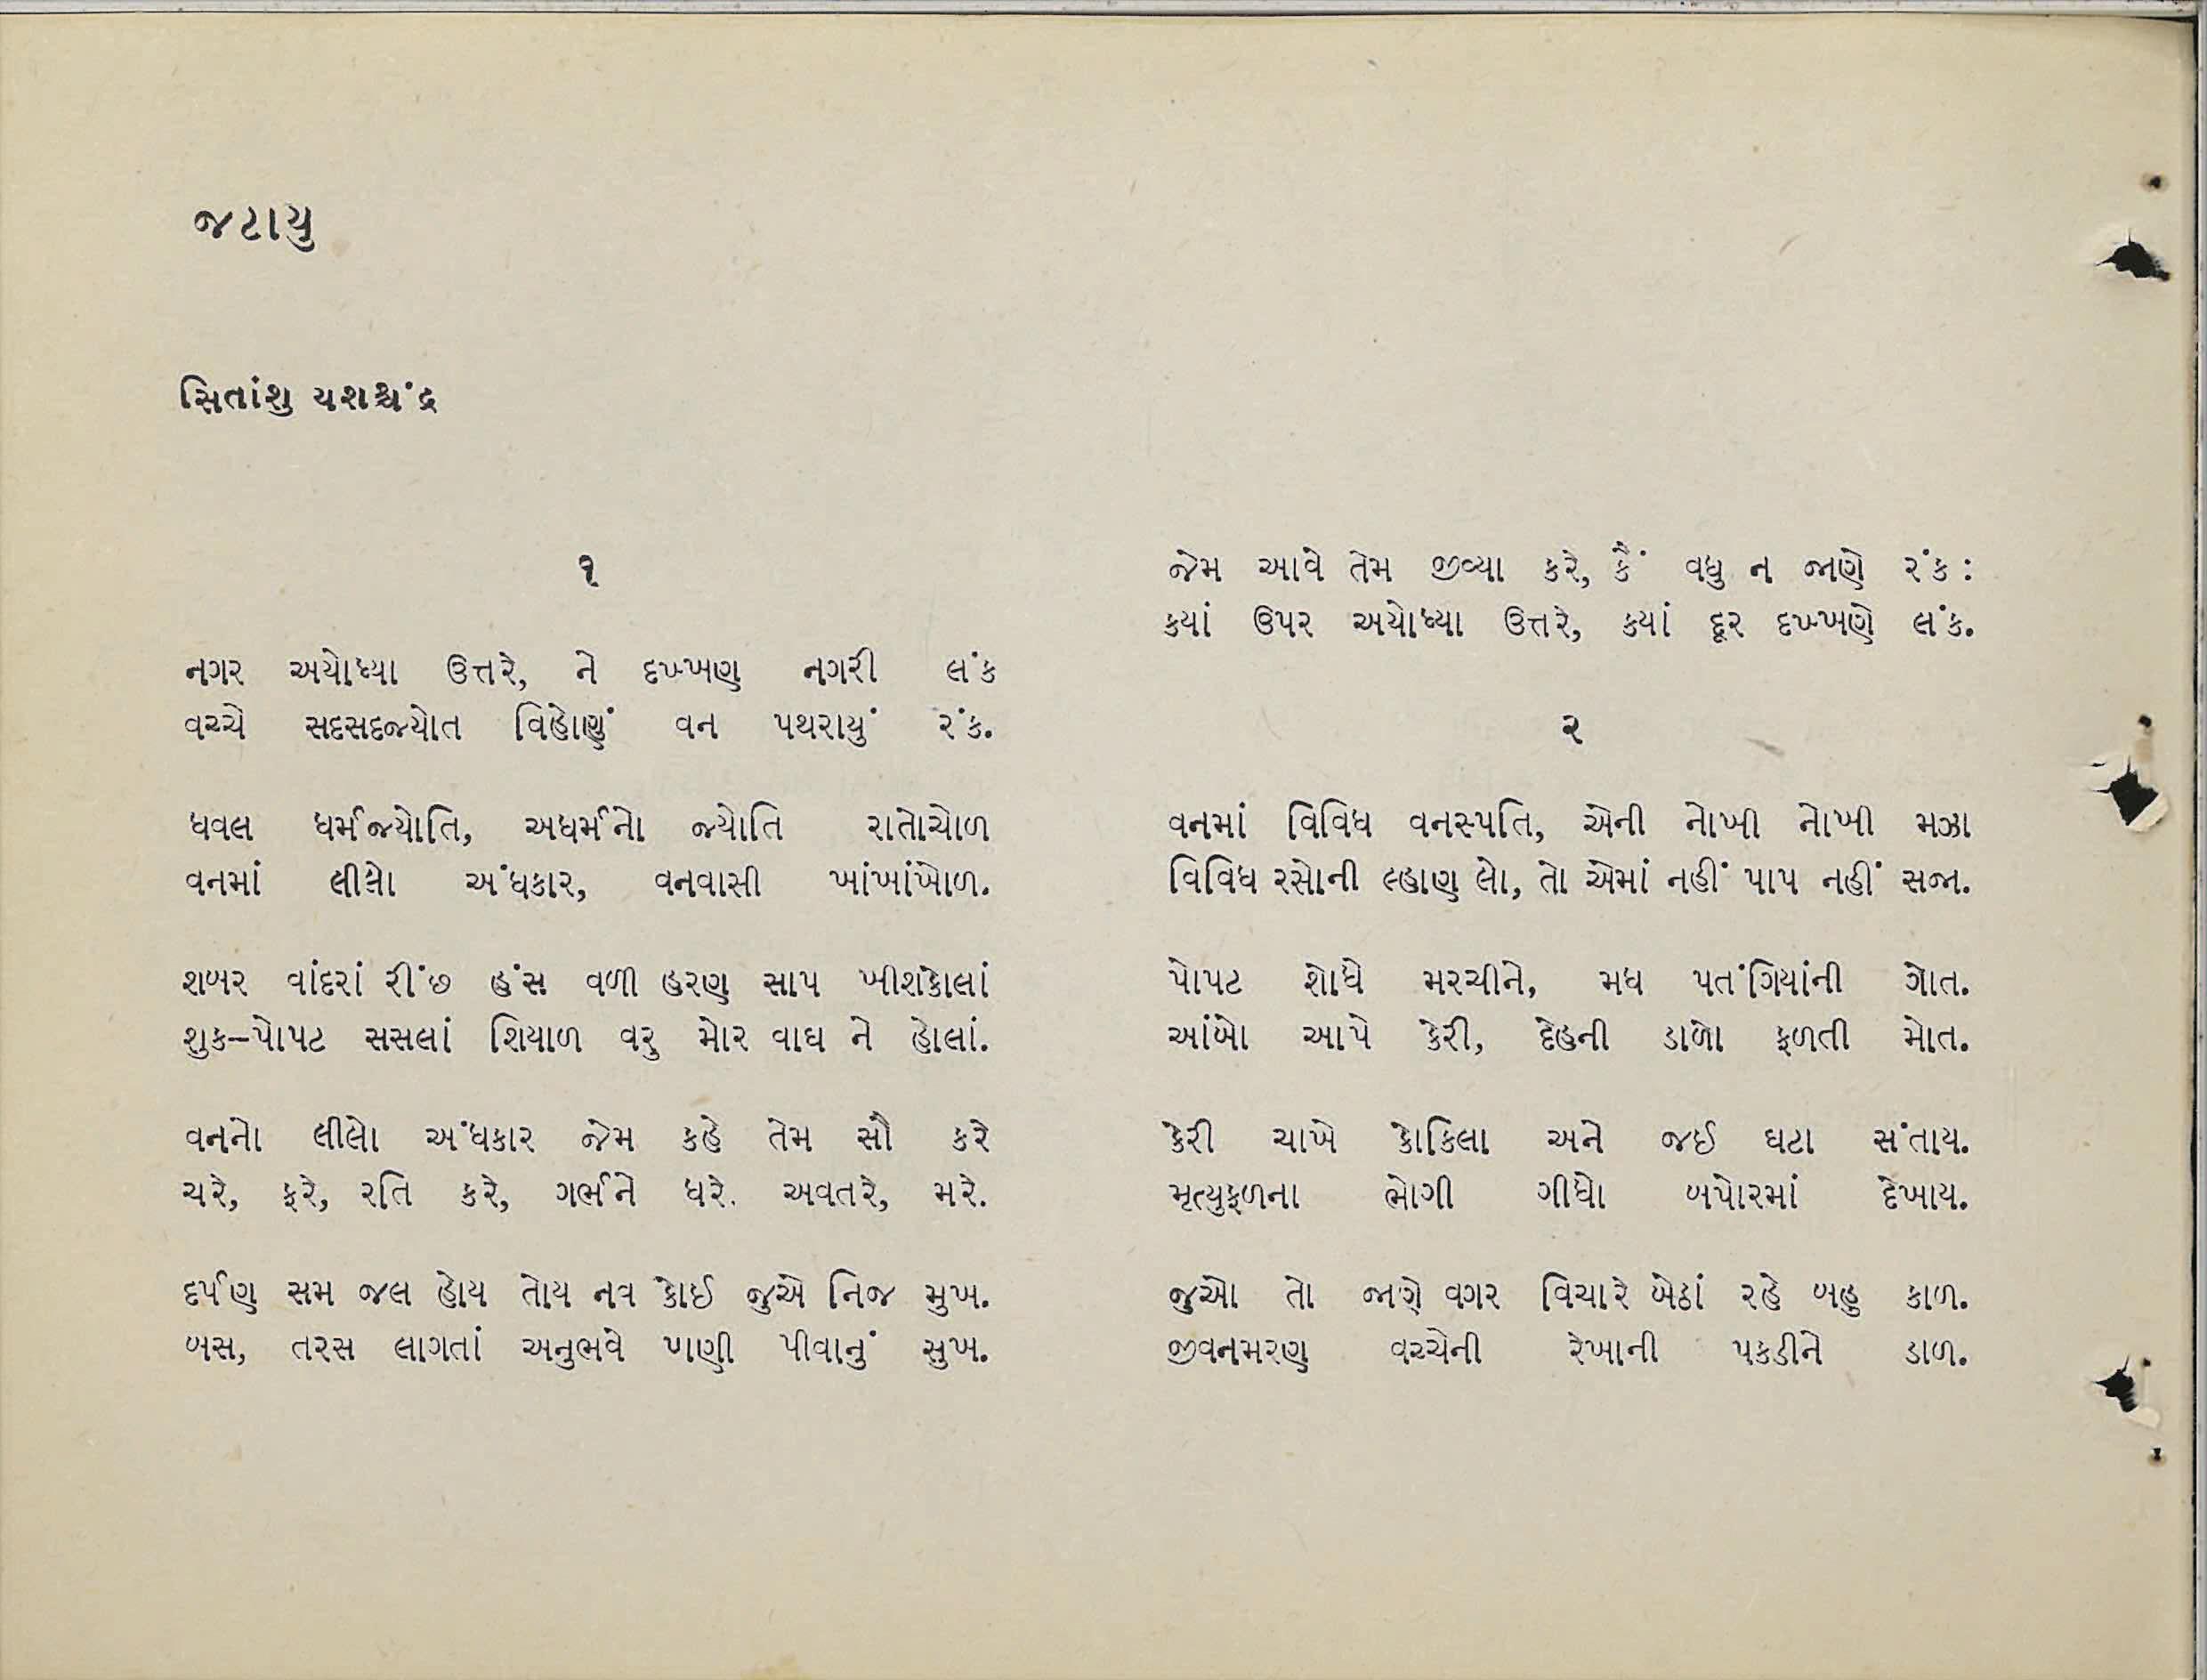 જટાયુ
સિતાંશુ યશશ્ચંદ્ર
૧
નગર અયોધ્યા ઉત્તરે, ને દખ્ખણ નગરી લંક
વચ્ચે સદસદજ્યોત વિહોણું વન પથરાયું રંક.
ધવલ ધર્મજ્યોતિ, અધર્મનો જ્યોતિ રાતોચોળ
વનમાં લીલો અંધકાર, વનવાસી ખાંખાંખોળ.
શબર વાંદરાં રીંછ હંસ વળી હરણ સાપ ખીશકોલાં
શુક–પોપટ સસલાં શિયાળ વરુ મોર વાઘ ને હોલાં.
વનનો લીલો અંધકાર જેમ કહે તેમ સૌ કરે
ચરે, ફરે, રતિ કરે, ગર્ભને ધરે. અવતરે, મરે.
દર્પણ સમ જલ હોય તોય નવ કોઈ જુએ નિજ મુખ.
બસ, તરસ લાગતાં અનુભવે પાણી પીવાનું સુખ.
જેમ આવે તેમ જીવ્યા કરે, કૈં વધુ ન જાણે રંક :
ક્યાં ઉપર અયોધ્યા ઉત્તરે, ક્યાં દૂર દખ્ખણે લંક.
૨
વનમાં વિવિધ વનસ્પતિ, એની નોખી નોખી મઝા
વિવિધ રસોની લ્હાણ લો, તો એમાં નહીં પાપ નહીં સજા.
પોપટ શોધે મરચીને, મધ પતંગિયાંની ગોત.
આંબો આપે કેરી, દેહની ડાળો ફળતી મોત.
કેરી ચાખે કોકિલા અને જઈ ઘટા સંતાય.
મૃત્યુફળના ભોગી ગીધો બપોરમાં દેખાય.
જુઓ તો જાણે વગર વિચારે બેઠાં રહે બહુ કાળ.
જીવનમરણ વચ્ચેની રેખાની પકડીને ડાળ.